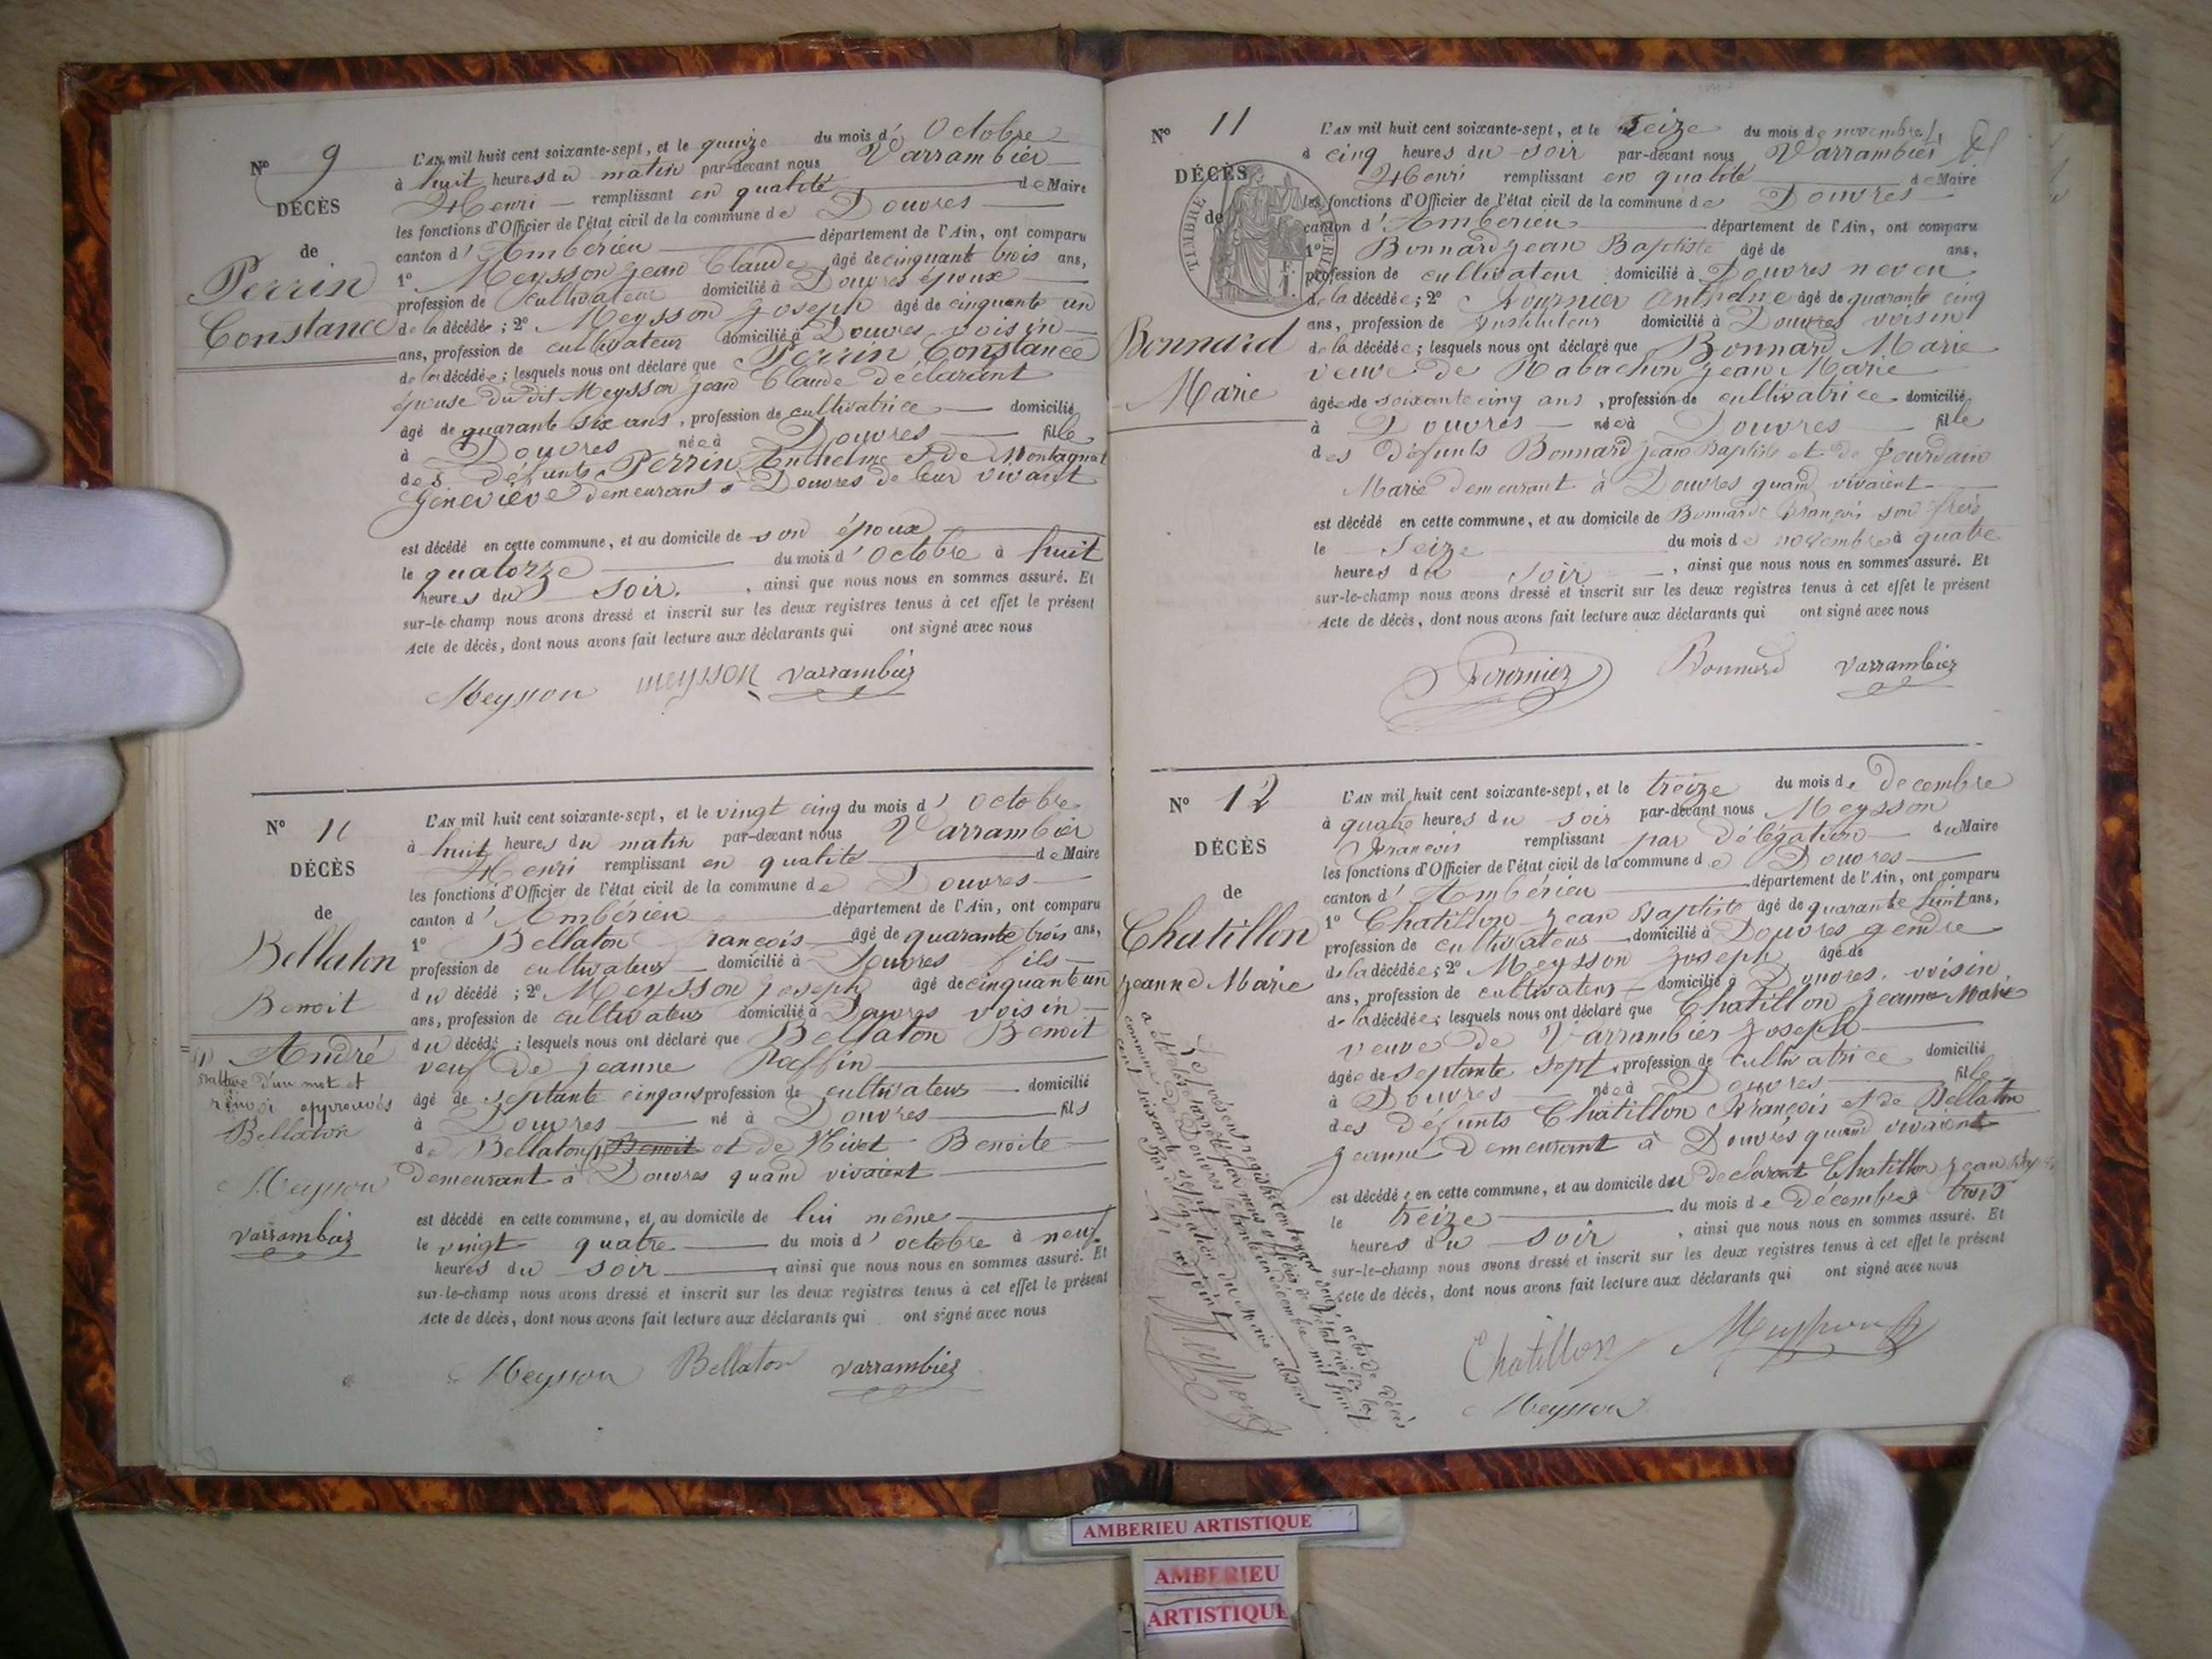 N° 9
DÉCÈS
de
Perrin
Constance
L'AN mil huit cent soixante-sept, et le quinze du mois d'Octobre
à huit heures du matin par-devant nous Varrambier
Henri remplissant en qualité de Maire
les fonctions d'Officier de l'état civil de la commune de Douvres
canton d'Ambérieu département de l'Ain, ont comparu
1° Meysson Jean Claude âgé de cinquante trois ans,
profession de cultivateur domicilié à Douvres époux
de la décédée ; 2° Meysson Joseph âgé de cinquante un
ans, profession de cultivateur domicilié à Douvres voisin
de la décédée ; lesquels nous ont déclaré que Perrin Constance
épouse du dit Meysson Jean Claude déclarant
âgé de quarante six ans, profession de cultivatrice domicilié
à Douvres née à Douvres fille
des défunts Perrin Anthelme et de Montagnat
Geneviève demeurant à Douvres de leur vivant
est décédé en cette commune, et au domicile de son époux
le quatorze du mois d'Octobre à huit
heures du soir, ainsi que nous nous en sommes assuré. Et
sur-le-champ nous avons dressé et inscrit sur les deux registres tenus à cet effet le présent
Acte de décès, dont nous avons fait lecture aux déclarants qui ont signé avec nous
Meysson meysson varrambier
N° 10
DÉCÈS
de
Bellaton
Benoit
(1) André
rature d'un mot et
renvoi approuvés
Bellaton
Meysson
varrambier
L'AN mil huit cent soixante-sept, et le vingt cinq du mois d'Octobre
à huit heures du matin par-devant nous Varrambier
Henri remplissant en qualité de Maire
les fonctions d'Officier de l'état civil de la commune de Douvres
canton d'Ambérieu département de l'Ain, ont comparu
1° Bellaton François âgé de quarante trois ans,
profession de cultivateur domicilié à Douvres fils
du décédé ; 2° Meysson Joseph âgé de cinquante un
ans, profession de cultivateur domicilié à Douvres voisin
du décédé ; lesquels nous ont déclaré que Bellaton Benoit
veuf de Jeanne
âgé de septante cinq ans profession de cultivateur domicilié
à Douvres né à Douvres fils
de Bellaton (1) Benoit et de Nivet Benoite
demeurant à Douvres quand vivaient
est décédé en cette commune, et au domicile de lui même
le vingt quatre du mois d'octobre à neuf
heures du soir, ainsi que nous nous en sommes assuré. Et
sur-le-champ nous avons dressé et inscrit sur les deux registres tenus à cet effet le présent
Acte de décès, dont nous avons fait lecture aux déclarants qui ont signé avec nous
Meysson Bellaton varrambier
N° 11
DÉCÈS
de
TIMBRE
Bonnard
Marie
L'AN mil huit cent soixante-sept, et le Seize du mois de novembre
à cinq heures du soir par-devant nous Varrambier
Henri remplissant en qualité de Maire
les fonctions d'Officier de l'état civil de la commune de Douvres
canton d'Ambérieu département de l'Ain, ont comparu
1° Bonnard Jean Baptiste âgé de ans,
profession de cultivateur domicilié à Douvres neveu
de la décédée ; 2° Fournier Anthelme âgé de quarante cinq
ans, profession de Instituteur domicilié à Douvres voisin
de la décédée ; lesquels nous ont déclaré que Bonnard Marie
veuve de Rabachon Jean Marie
âgée de soixante cinq ans, profession de cultivatrice domicilié
à Douvres née à Douvres fille
des défunts Bonnard Jean Baptiste et de Jourdain
Marie demeurant à Douvres quand vivaient
est décédé en cette commune, et au domicile de Bonnard François son frère
le Seize du mois de novembre à quatre
heures du soir, ainsi que nous nous en sommes assuré. Et
sur-le-champ nous avons dressé et inscrit sur les deux registres tenus à cet effet le présent
Acte de décès, dont nous avons fait lecture aux déclarants qui ont signé avec nous
Fournier Bonnard varrambier
N° 12
DÉCÈS
de
Chatillon
Jeanne Marie
L'AN mil huit cent soixante-sept, et le treize du mois de Decembre
à quatre heures du soir par-devant nous Meysson
François remplissant par délégation du Maire
les fonctions d'Officier de l'état civil de la commune de Douvres
canton d'Ambérieu département de l'Ain, ont comparu
1° Chatillon Jean Baptiste âgé de quarante huit ans,
profession de cultivateur domicilié à Douvres gendre
de la décédée ; 2° Meysson Joseph âgé de
ans, profession de cultivateur domicilié à Douvres, voisin
de la décédée ; lesquels nous ont déclaré que Chatillon Jeanne Marie
veuve de Varrambier Joseph
âgée de septante sept, profession de cultivatrice domicilié
à Douvres née à Douvres fille
des défunts Chatillon François et de Bellaton
Jeanne demeurant à Douvres quand vivaient
est décédée en cette commune, et au domicile du déclarant Chatillon Jean Bapt
le treize du mois de Décembre à trois
heures du soir, ainsi que nous nous en sommes assuré. Et
sur-le-champ nous avons dressé et inscrit sur les deux registres tenus à cet effet le présent
Acte de décès, dont nous avons fait lecture aux déclarants qui ont signé avec nous
Chatillon Meysson
Meysson
Le présent registre contenant douze actes de décès
a été clos et arrêté par nous officier de l'état civil de la
commune de Douvres le trente un décembre mil huit
cent soixante sept
Par délégation du Maire absent
adjoint
Meysson
AMBERIEU ARTISTIQUE
AMBERIEU
ARTISTIQUE